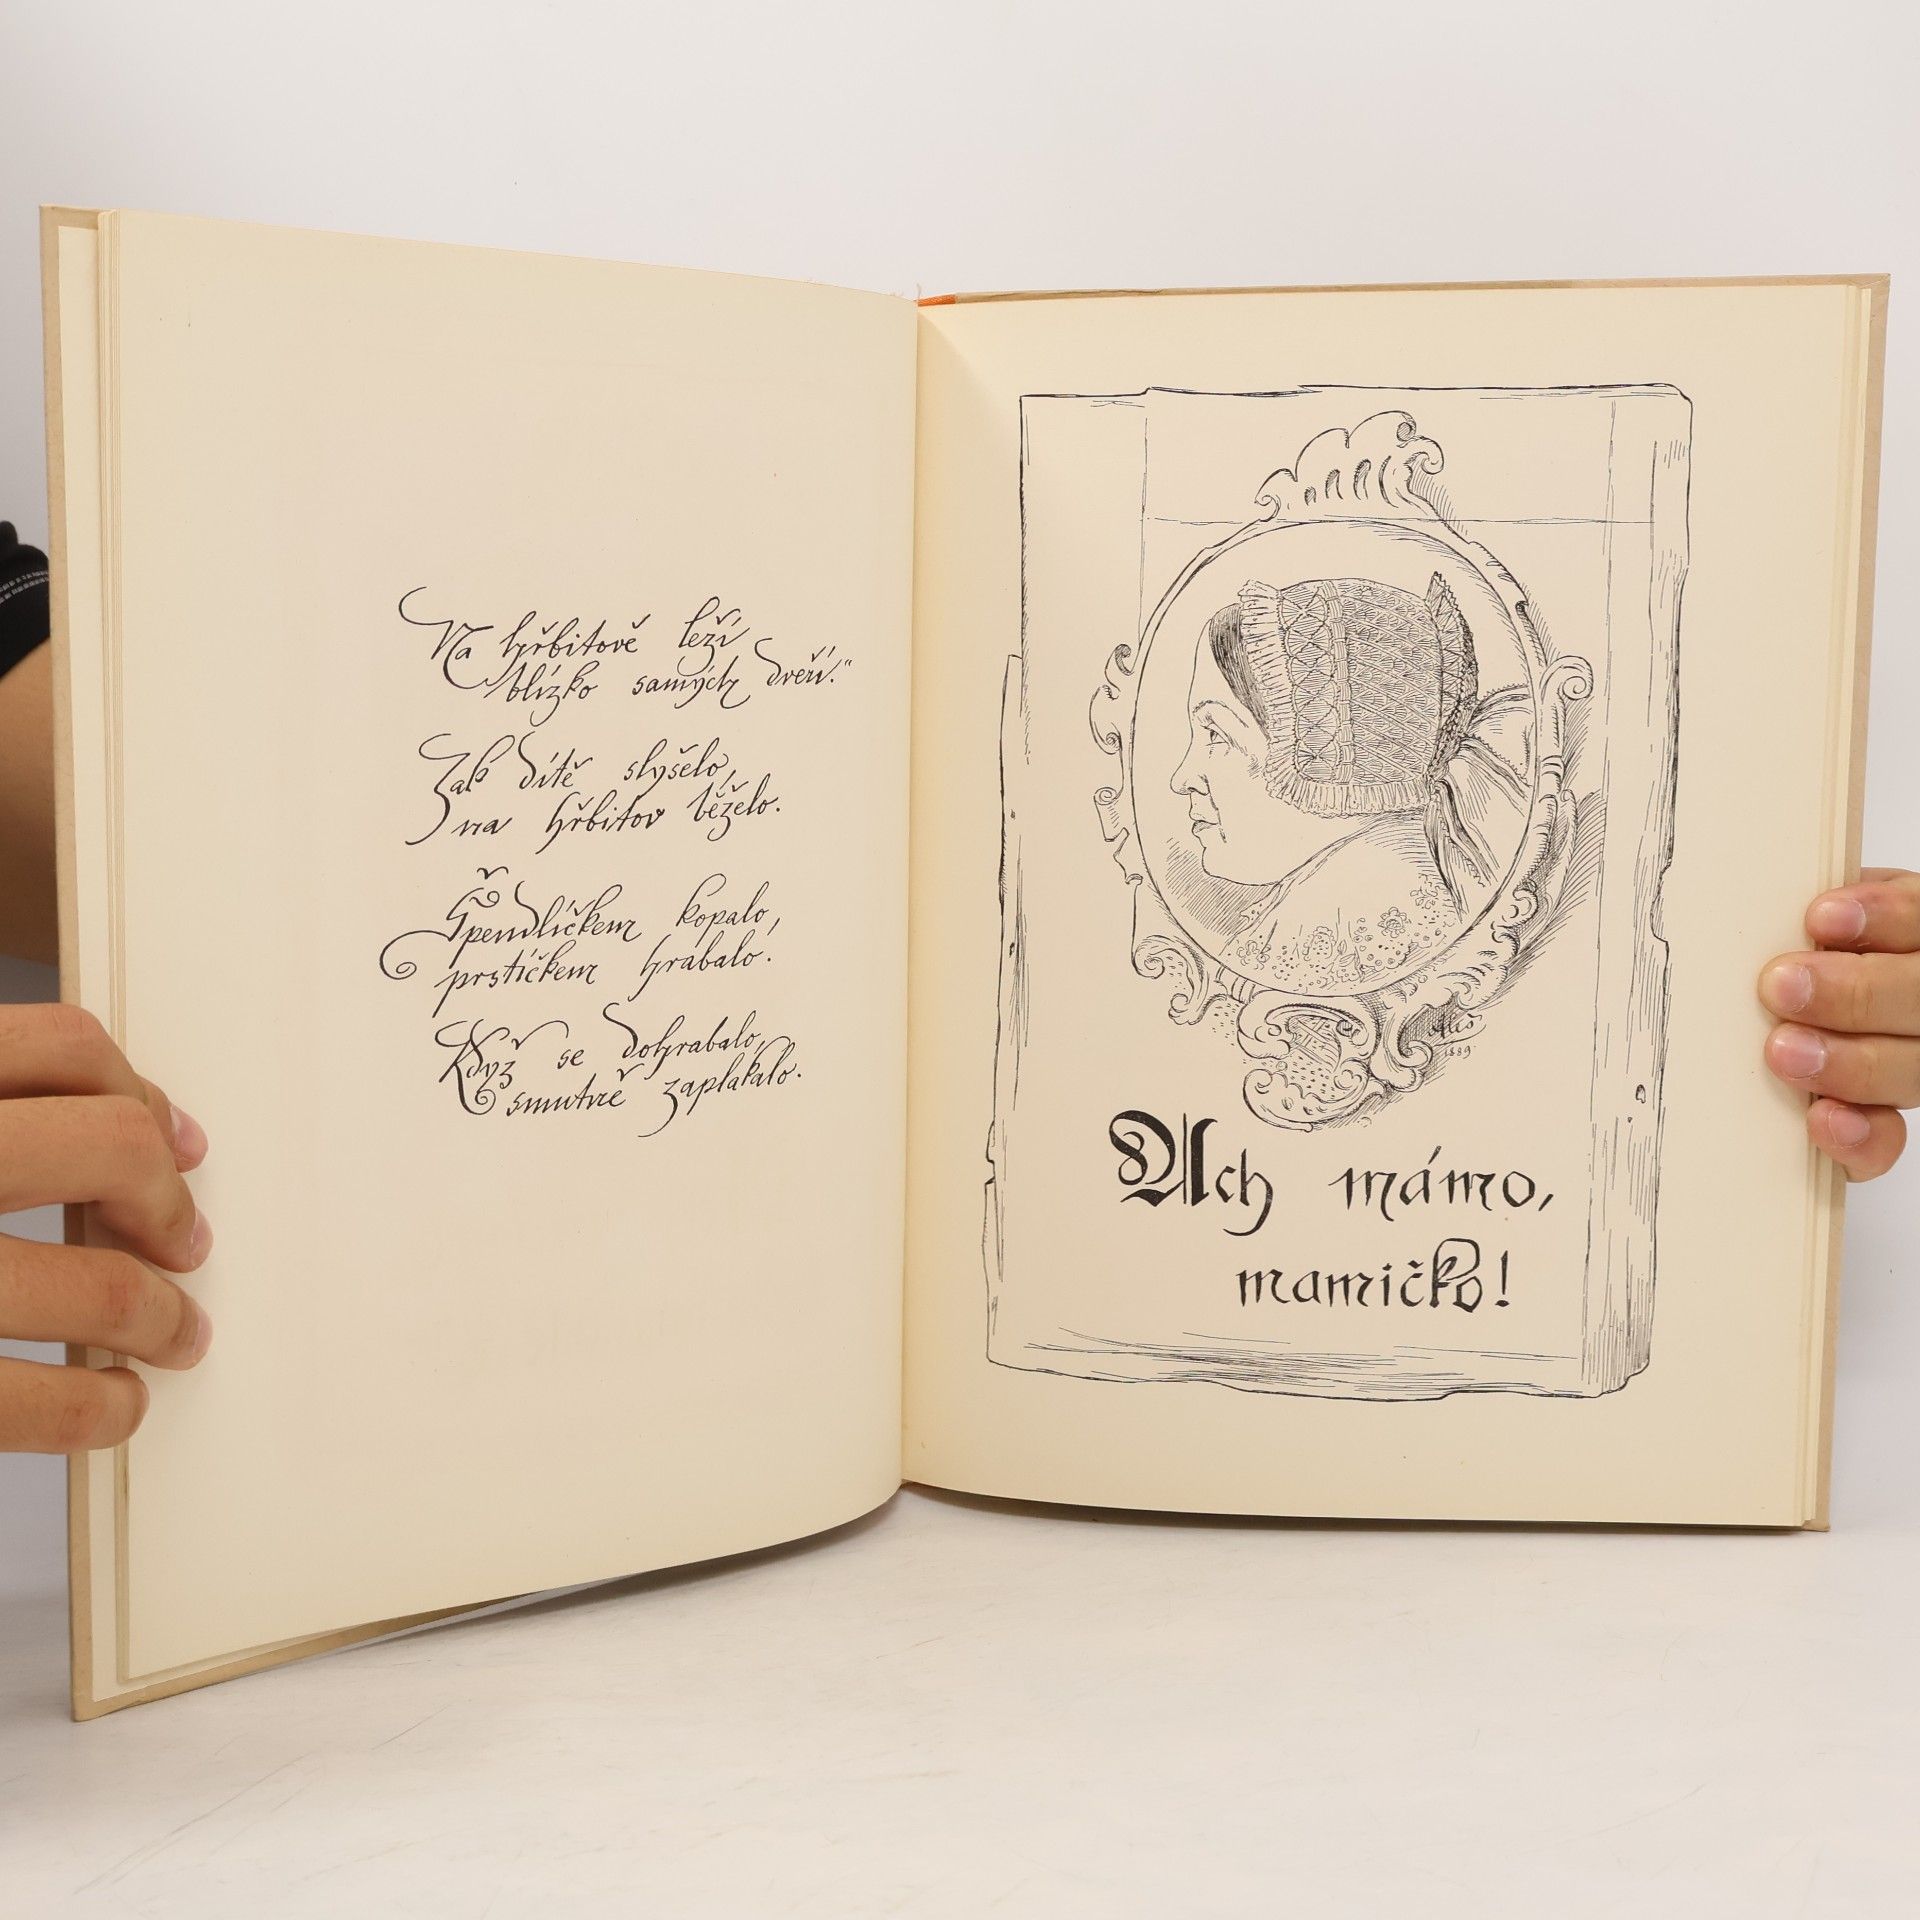 Na hřbitově leží
blízko samých dveří."
Jak dítě slyšelo,
na hřbitov běželo.
Špendlíčkem kopalo,
prstíčkem hrabalo.
Když se dohrabalo,
smutně zaplakalo.
Aleš
1889
Ach mámo,
mamičko!